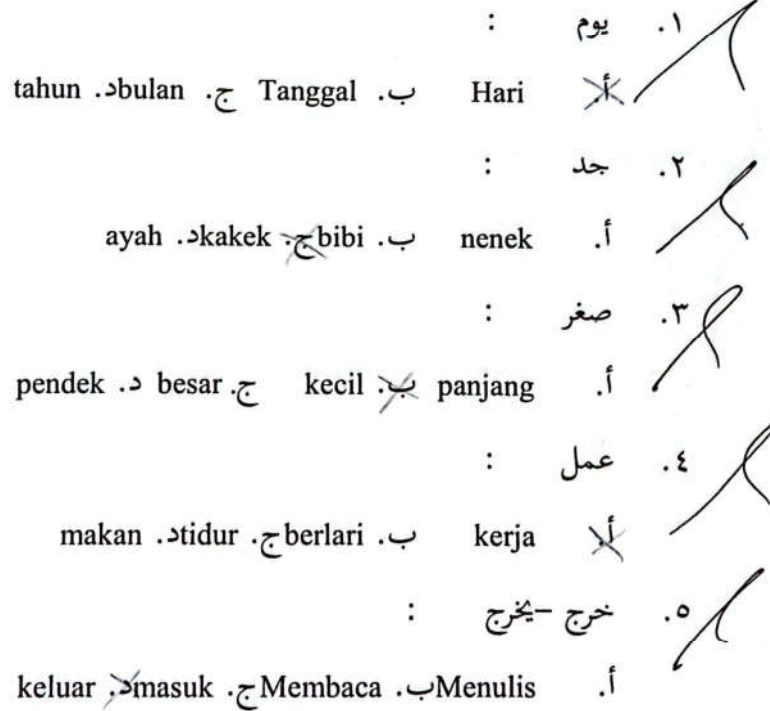 ١. يوم :
أ. Hari ب. Tanggal ج. bulan د. tahun
٢. جد :
أ. nenek ب. bibi ج. kakek د. ayah
٣. صغر :
أ. panjang ب. kecil ج. besar د. pendek
٤. عمل :
أ. kerja ب. berlari ج. tidur د. makan
٥. خرج – يخرج :
أ. Menulis ب. Membaca ج. masuk د. keluar